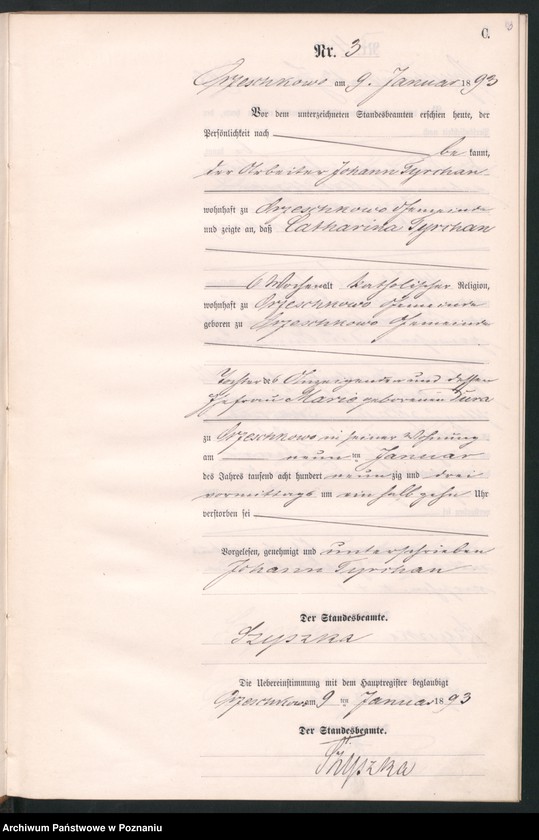 C.
Nr. 3
Orzeschkowo am 9. Januar 1893
Vor dem unterzeichneten Standesbeamten erschien heute, der
Persönlichkeit nach
be kannt,
der Arbeiter Johann Tyrchan
wohnhaft zu Orzeschkowo Gemeinde
und zeigte an, daß Catharina Tyrchan
6 Wochen alt katholischer Religion,
wohnhaft zu Orzeschkowo Gemeinde
geboren zu Orzeschkowo Gemeinde
Tochter des Anzeigenden und dessen
Ehefrau Marie geborenen
zu Orzeschkowo in seiner Wohnung
am neun ten Januar
des Jahres tausend acht hundert neun zig und drei
vormittags um ein halb zehn Uhr
verstorben sei
Vorgelesen, genehmigt und unterschrieben
Johann Tyrchan
Der Standesbeamte.
Szyszka
Die Uebereinstimmung mit dem Hauptregister beglaubigt
Orzeschkowo am 9 ten Januar 1893
Der Standesbeamte.
Szyszka
Archiwum Państwowe w Poznaniu